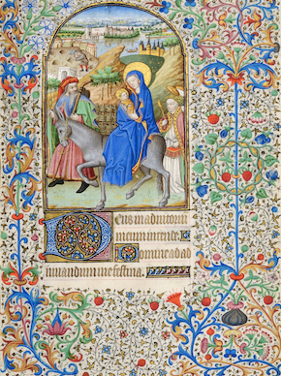 Deus in adiutorium
meum intende.
Domine ad ad
iuuandum me festina.